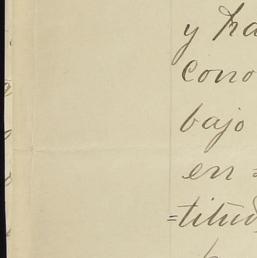 y ha
cono
bajo
en =
=titud